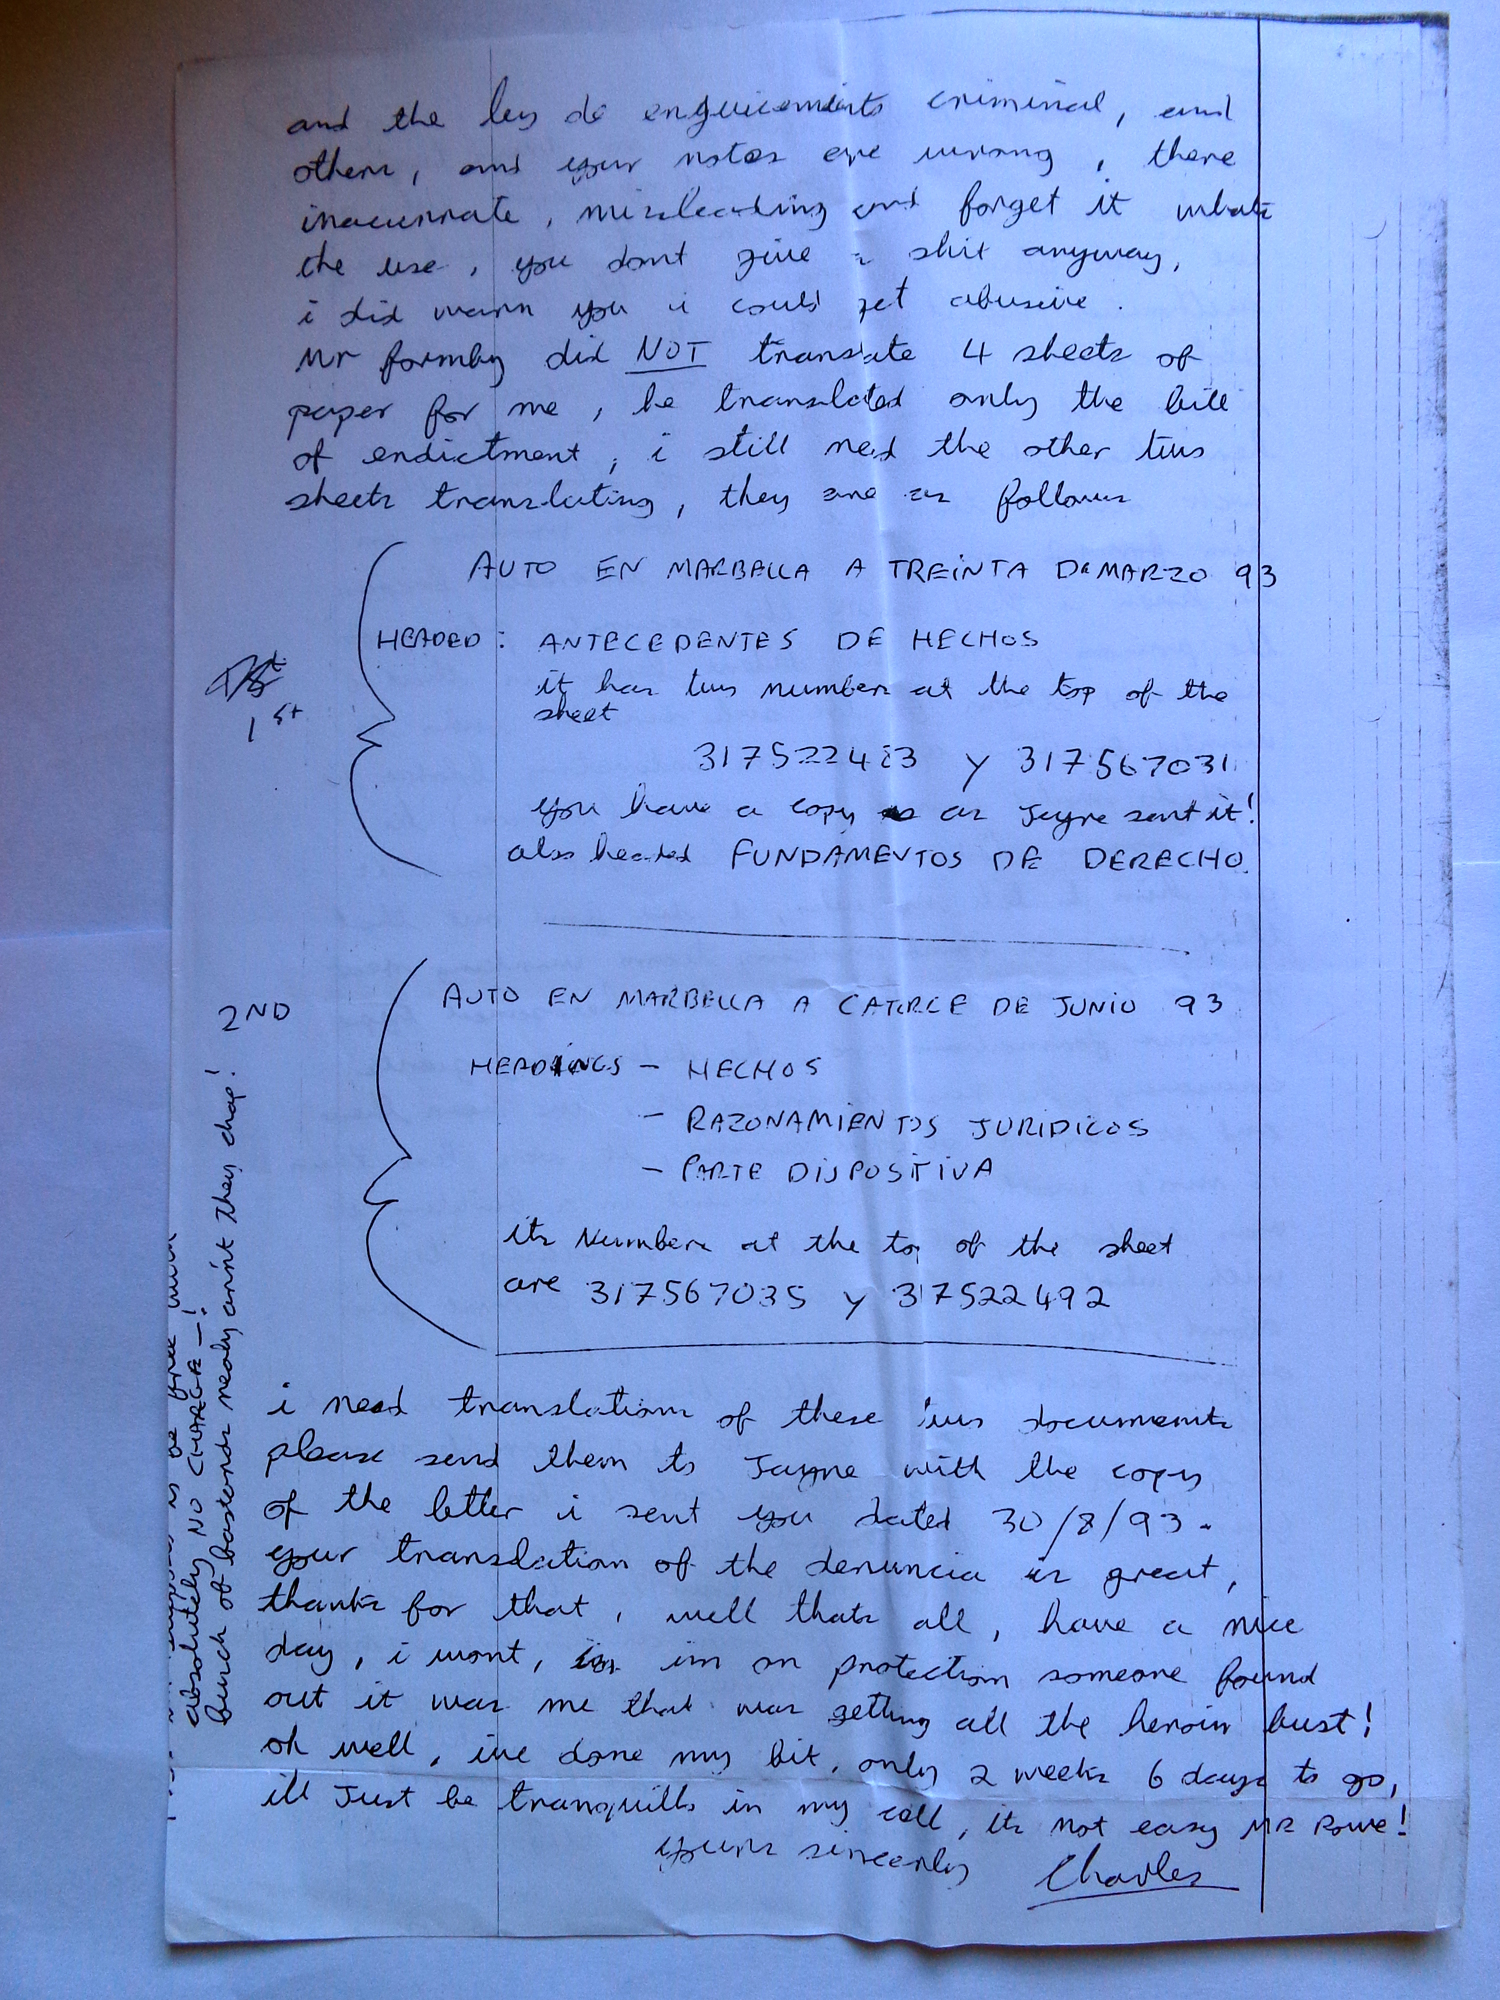 and the ley de enguicements criminal, and
others, and your notes are wrong, there
inacurrate, misleading and forget it whats
the use, you dont give a shit anyway,
i did warn you i could get abusive.
Mr formby did NOT translate 4 sheets of
paper for me, he translated only the bill
of endictment, i still need the other two
sheets translating, they are as follows
AUTO EN MARBELLA A TREINTA De MARZO 93
HEADED: ANTECEDENTES DE HECHOS
1st
it has two numbers at the top of the
sheet
317522483 y 317567031
you have a copy as Jayne sent it!
also headed FUNDAMENTOS DE DERECHO.
2ND
AUTO EN MARBELLA A CATORCE DE JUNIO 93
HEADINGS - HECHOS
- RAZONAMIENTOS JURIDICOS
- PARTE DISPOSITIVA
its Numbers at the top of the sheet
are 317567035 y 317522492
i need translations of these two documents
please send them to Jayne with the copy
of the letter i sent you dated 30/8/93.
your translation of the denuncia is great,
thanks for that, well thats all, have a nice
day, i wont, im on protection someone found
out it was me that was getting all the heroin bust!
oh well, ive done my bit, only 2 weeks 6 days to go,
ill Just be tranquillo in my cell, its not easy MR Rowe!
yours sincerely Charles
absolutely NO CHARGE -!
bunch of bastards realy arn't they chap!